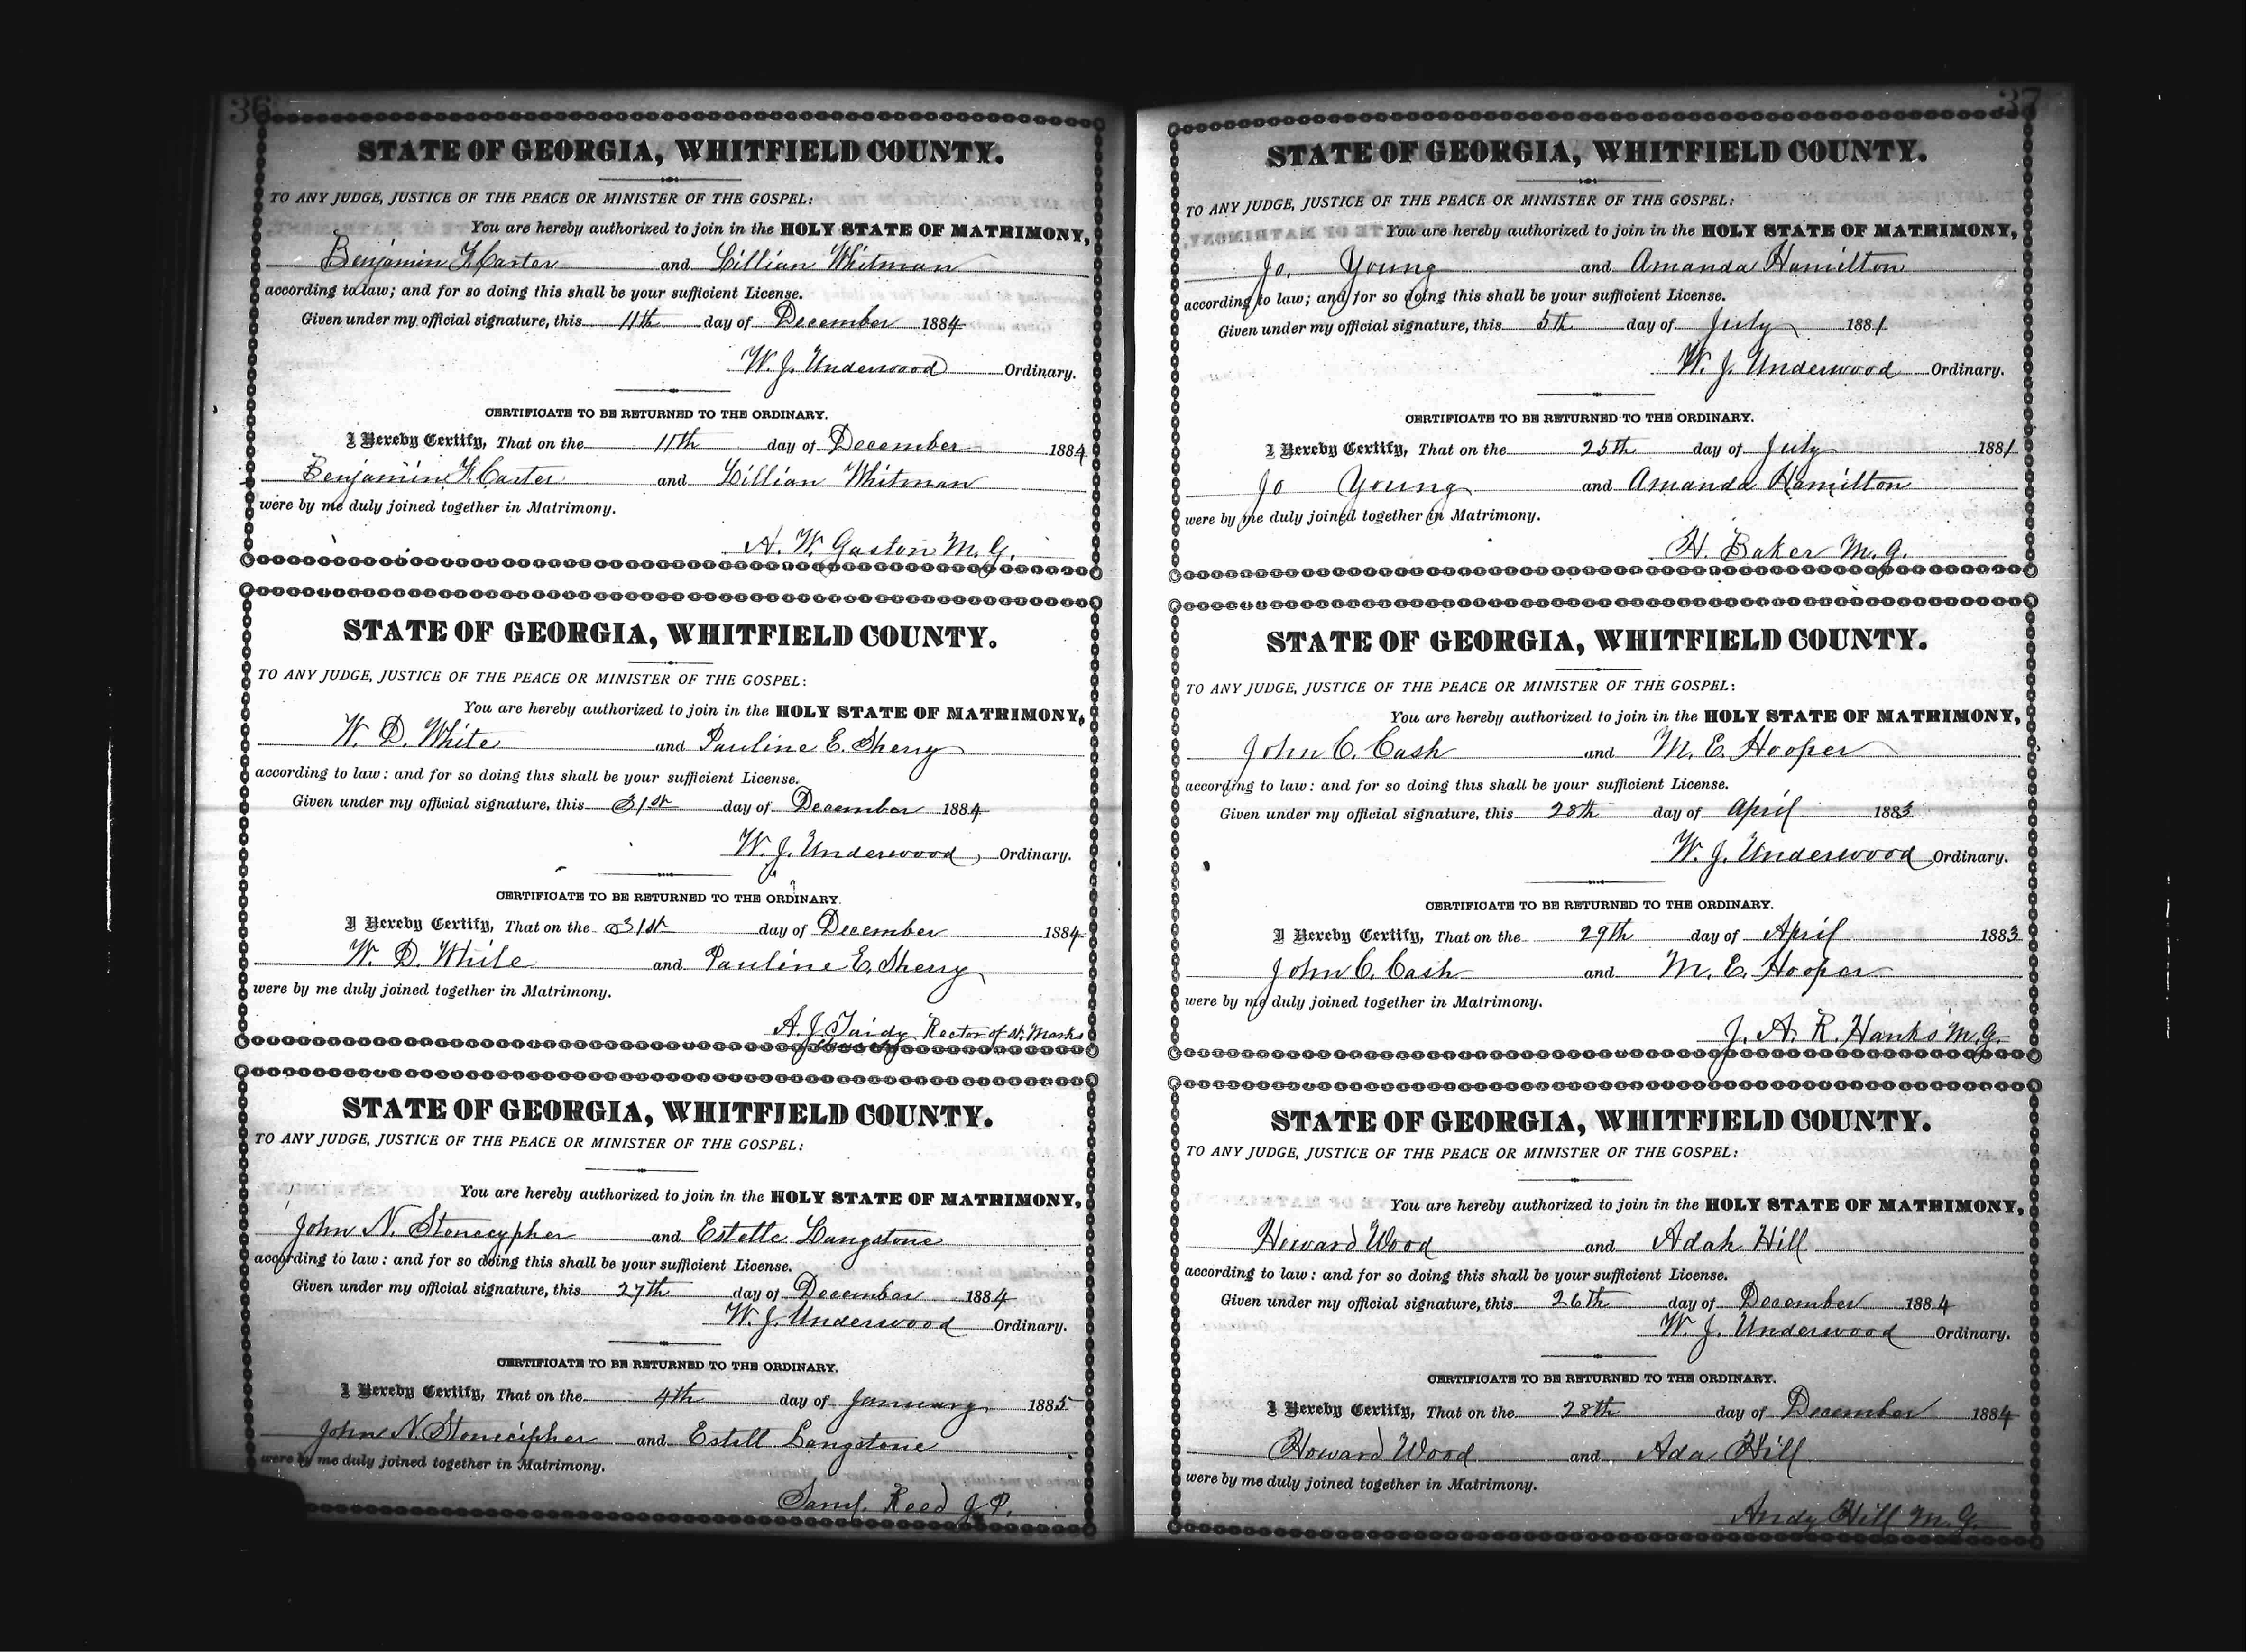 36
STATE OF GEORGIA, WHITFIELD COUNTY.
TO ANY JUDGE, JUSTICE OF THE PEACE OR MINISTER OF THE GOSPEL:
You are hereby authorized to join in the HOLY STATE OF MATRIMONY,
Benjamin F. Carter and Lillian Whitman
according to law; and for so doing this shall be your sufficient License.
Given under my official signature, this 11th day of December 1884
W. J. Underwood Ordinary.
CERTIFICATE TO BE RETURNED TO THE ORDINARY.
I Hereby Certify, That on the 11th day of December 1884
Benjamin F. Carter and Lillian Whitman
were by me duly joined together in Matrimony.
A. W. Gaston M. G.
STATE OF GEORGIA, WHITFIELD COUNTY.
TO ANY JUDGE, JUSTICE OF THE PEACE OR MINISTER OF THE GOSPEL:
You are hereby authorized to join in the HOLY STATE OF MATRIMONY,
W. D. White and Pauline E. Sherry
according to law: and for so doing this shall be your sufficient License.
Given under my official signature, this 31st day of December 1884
W. J. Underwood, Ordinary.
CERTIFICATE TO BE RETURNED TO THE ORDINARY.
I Hereby Certify, That on the 31st day of December 1884
W. D. White and Pauline E. Sherry
were by me duly joined together in Matrimony.
A. J. Rector of St. Marks
Church
STATE OF GEORGIA, WHITFIELD COUNTY.
TO ANY JUDGE, JUSTICE OF THE PEACE OR MINISTER OF THE GOSPEL:
You are hereby authorized to join in the HOLY STATE OF MATRIMONY,
John N. Stonecypher and Estelle Langstone
according to law: and for so doing this shall be your sufficient License.
Given under my official signature, this 27th day of December 1884
W. J. Underwood Ordinary.
CERTIFICATE TO BE RETURNED TO THE ORDINARY.
I Hereby Certify, That on the 4th day of January 1885
John N. Stonecipher and Estell Langstone
were by me duly joined together in Matrimony.
Saml. Reed J. P.
37
STATE OF GEORGIA, WHITFIELD COUNTY.
TO ANY JUDGE, JUSTICE OF THE PEACE OR MINISTER OF THE GOSPEL:
You are hereby authorized to join in the HOLY STATE OF MATRIMONY,
Jo. Young and Amanda Hamilton
according to law; and for so doing this shall be your sufficient License.
Given under my official signature, this 5th day of July 1881
W. J. Underwood Ordinary.
CERTIFICATE TO BE RETURNED TO THE ORDINARY.
I Hereby Certify, That on the 25th day of July 1881
Jo Young and Amanda Hamilton
were by me duly joined together in Matrimony.
H. Baker M. G.
STATE OF GEORGIA, WHITFIELD COUNTY.
TO ANY JUDGE, JUSTICE OF THE PEACE OR MINISTER OF THE GOSPEL:
You are hereby authorized to join in the HOLY STATE OF MATRIMONY,
John C. Cash and M. E. Hooper
according to law: and for so doing this shall be your sufficient License.
Given under my official signature, this 28th day of April 1883
W. J. Underwood Ordinary.
CERTIFICATE TO BE RETURNED TO THE ORDINARY.
I Hereby Certify, That on the 29th day of April 1883
John C. Cash and M. E. Hooper
were by me duly joined together in Matrimony.
J. A. R. Hanks M. G.
STATE OF GEORGIA, WHITFIELD COUNTY.
TO ANY JUDGE, JUSTICE OF THE PEACE OR MINISTER OF THE GOSPEL:
You are hereby authorized to join in the HOLY STATE OF MATRIMONY,
Howard Wood and Adah Hill
according to law: and for so doing this shall be your sufficient License.
Given under my official signature, this 26th day of December 1884
W. J. Underwood Ordinary.
CERTIFICATE TO BE RETURNED TO THE ORDINARY.
I Hereby Certify, That on the 28th day of December 1884
Howard Wood and Ada Hill
were by me duly joined together in Matrimony.
Andy Hill M. G.